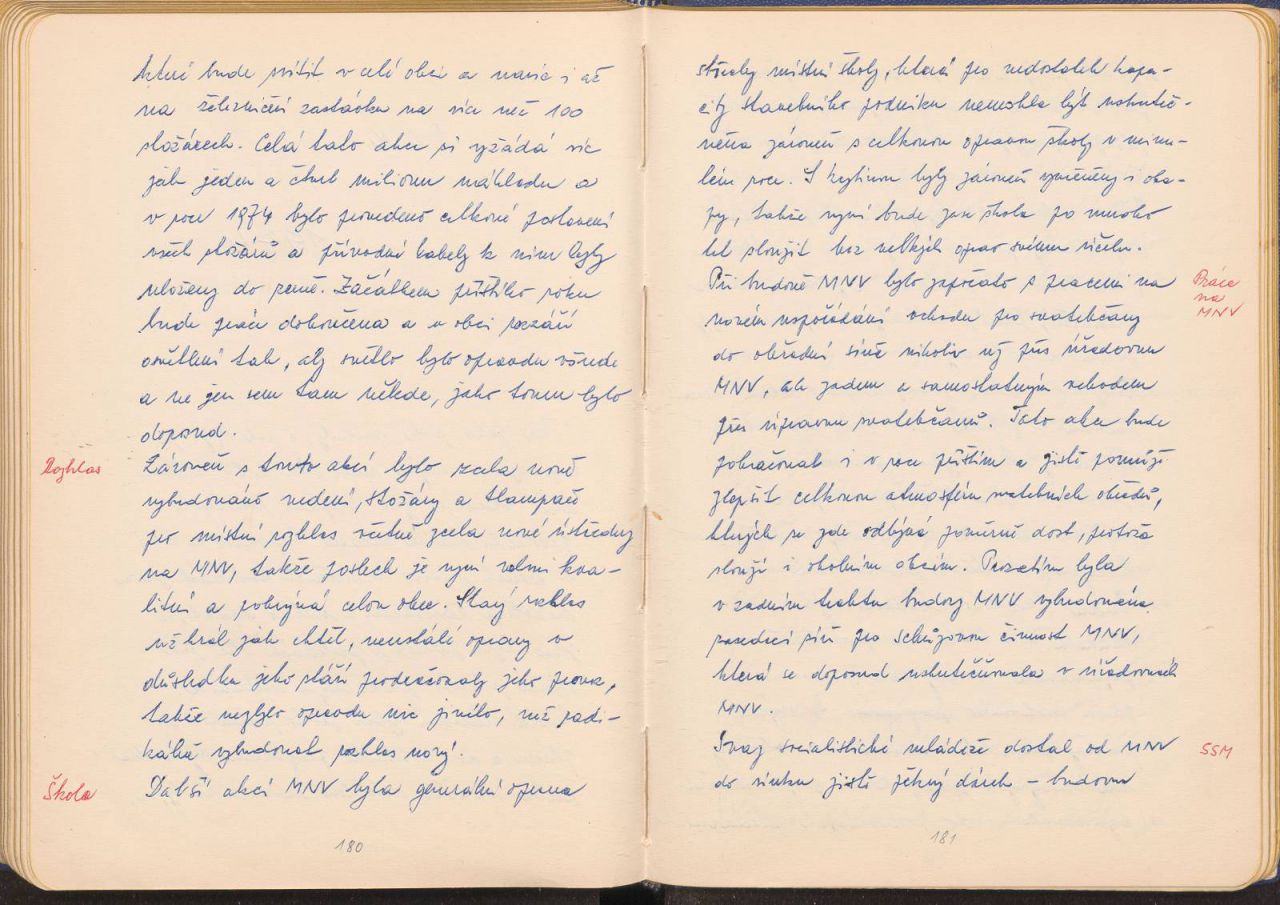 které bude svítit v celé obci a navíc i až
na železniční zastávku na více než 100
stožárech. Celá tato akce si vyžádá víc
jak jeden a čtvrt milionu nákladu a
v roce 1974 bylo provedeno celkové postavení
všech stožárů a přívodní kabely k nim byly
uloženy do země. Začátkem příštího roku
bude práce dokončena a v obci rozzáří
osvětlení tak, aby světlo bylo opravdu všude
a ne jen sem tam někde, jako tomu bylo
doposud.
Rozhlas
Zároveň s touto akcí bylo zcela nově
vybudováno vedení, stožáry a tlampače
pro místní rozhlas včetně zcela nové ústředny
na MNV, takže poslech je nyní velmi kva-
litní a pokrývá celou obec. Starý rozhlas
už hrál jak chtěl, neustálé opravy v
důsledku jeho stáří prodražovaly jeho provoz,
takže nezbylo opravdu nic jiného, než radi-
kálně vybudovat rozhlas nový.
Škola
Další akcí MNV byla generální oprava
180
střechy místní školy, která pro nedostatek kapa-
city stavebního podniku nemohla být uskuteč-
něna zároveň s celkovou opravou školy v minu-
lém roce. S krytinou byly zároveň vyměněny i oka-
py, takže nyní bude zase škola po mnoho
let sloužit bez velkých oprav svému účelu.
Práce
na
MNV
Při budově MNV bylo započato s pracemi na
novém uspořádání vchodu pro svatebčany
do obřadní síně nikoliv už přes úřadovnu
MNV, ale zadem a samostatným vchodem
přes úpravnu svatebčanů. Tato akce bude
pokračovat i v roce příštím a jistě pomůže
zlepšit celkovou atmosféru svatebních obřadů,
kterých se zde odbývá poměrně dost, protože
slouží i okolním obcím. Prozatím byla
v zadním traktu budovy MNV vybudována
zasedací síň pro schůzovou činnost MNV,
která se doposud uskutečňovala v úřadovnách
MNV.
SSM
Svaz socialistické mládeže dostal od MNV
do vínku jistě pěkný dárek – budovu
181